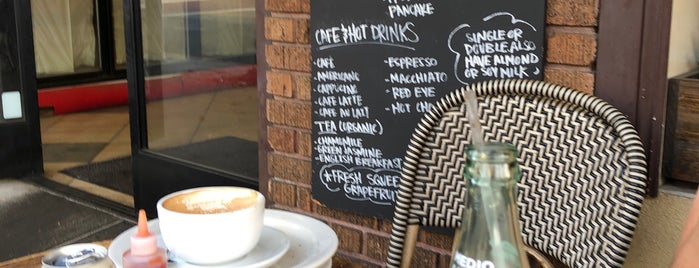 PANCAKE
CAFE & HOT DRINKS
- CAFE
- AMERICANO
- CAPPUCINE
- CAFE LATTE
- CAFE AU LAIT
TEA (ORGANIC)
- CHAMOMILE
- GREEN JASMINE
- ENGLISH BREAKFAST
- ESPRESSO
- MACCHIATO
- RED EYE
- HOT CHO
SINGLE OR
DOUBLE. ALSO
HAVE ALMOND
OR SOY MILK
* FRESH SQUEE
GRAPEFRU
MEDIO